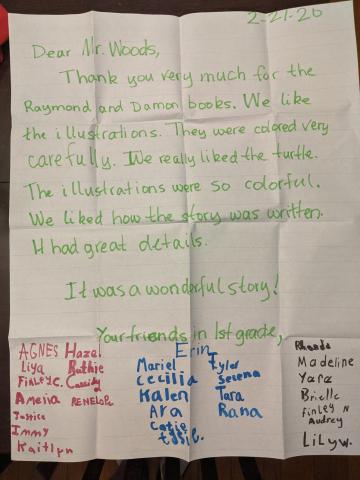 2-21-20
Dear Mr. Woods,
Thank you very much for the
Raymond and Damon books. We like
the illustrations. They were colored very
carefully. We really liked the turtle.
The illustrations were so colorful.
We liked how the story was written.
It had great details.
It was a wonderful story!
Your friends in 1st grade,
AGNES Hazel
Liya Ruthie
FiNLEY C. Cassidy
Ameiia PENELOPE
Justice
Immy
Kaitlyn
Erin
Mariel Tyler
Cecilia Serena
Kalen Tara
Ara Rana
Catie
Rhonda
Madeline
Yara
Brielle
Finley N
Audrey
LiLy w.